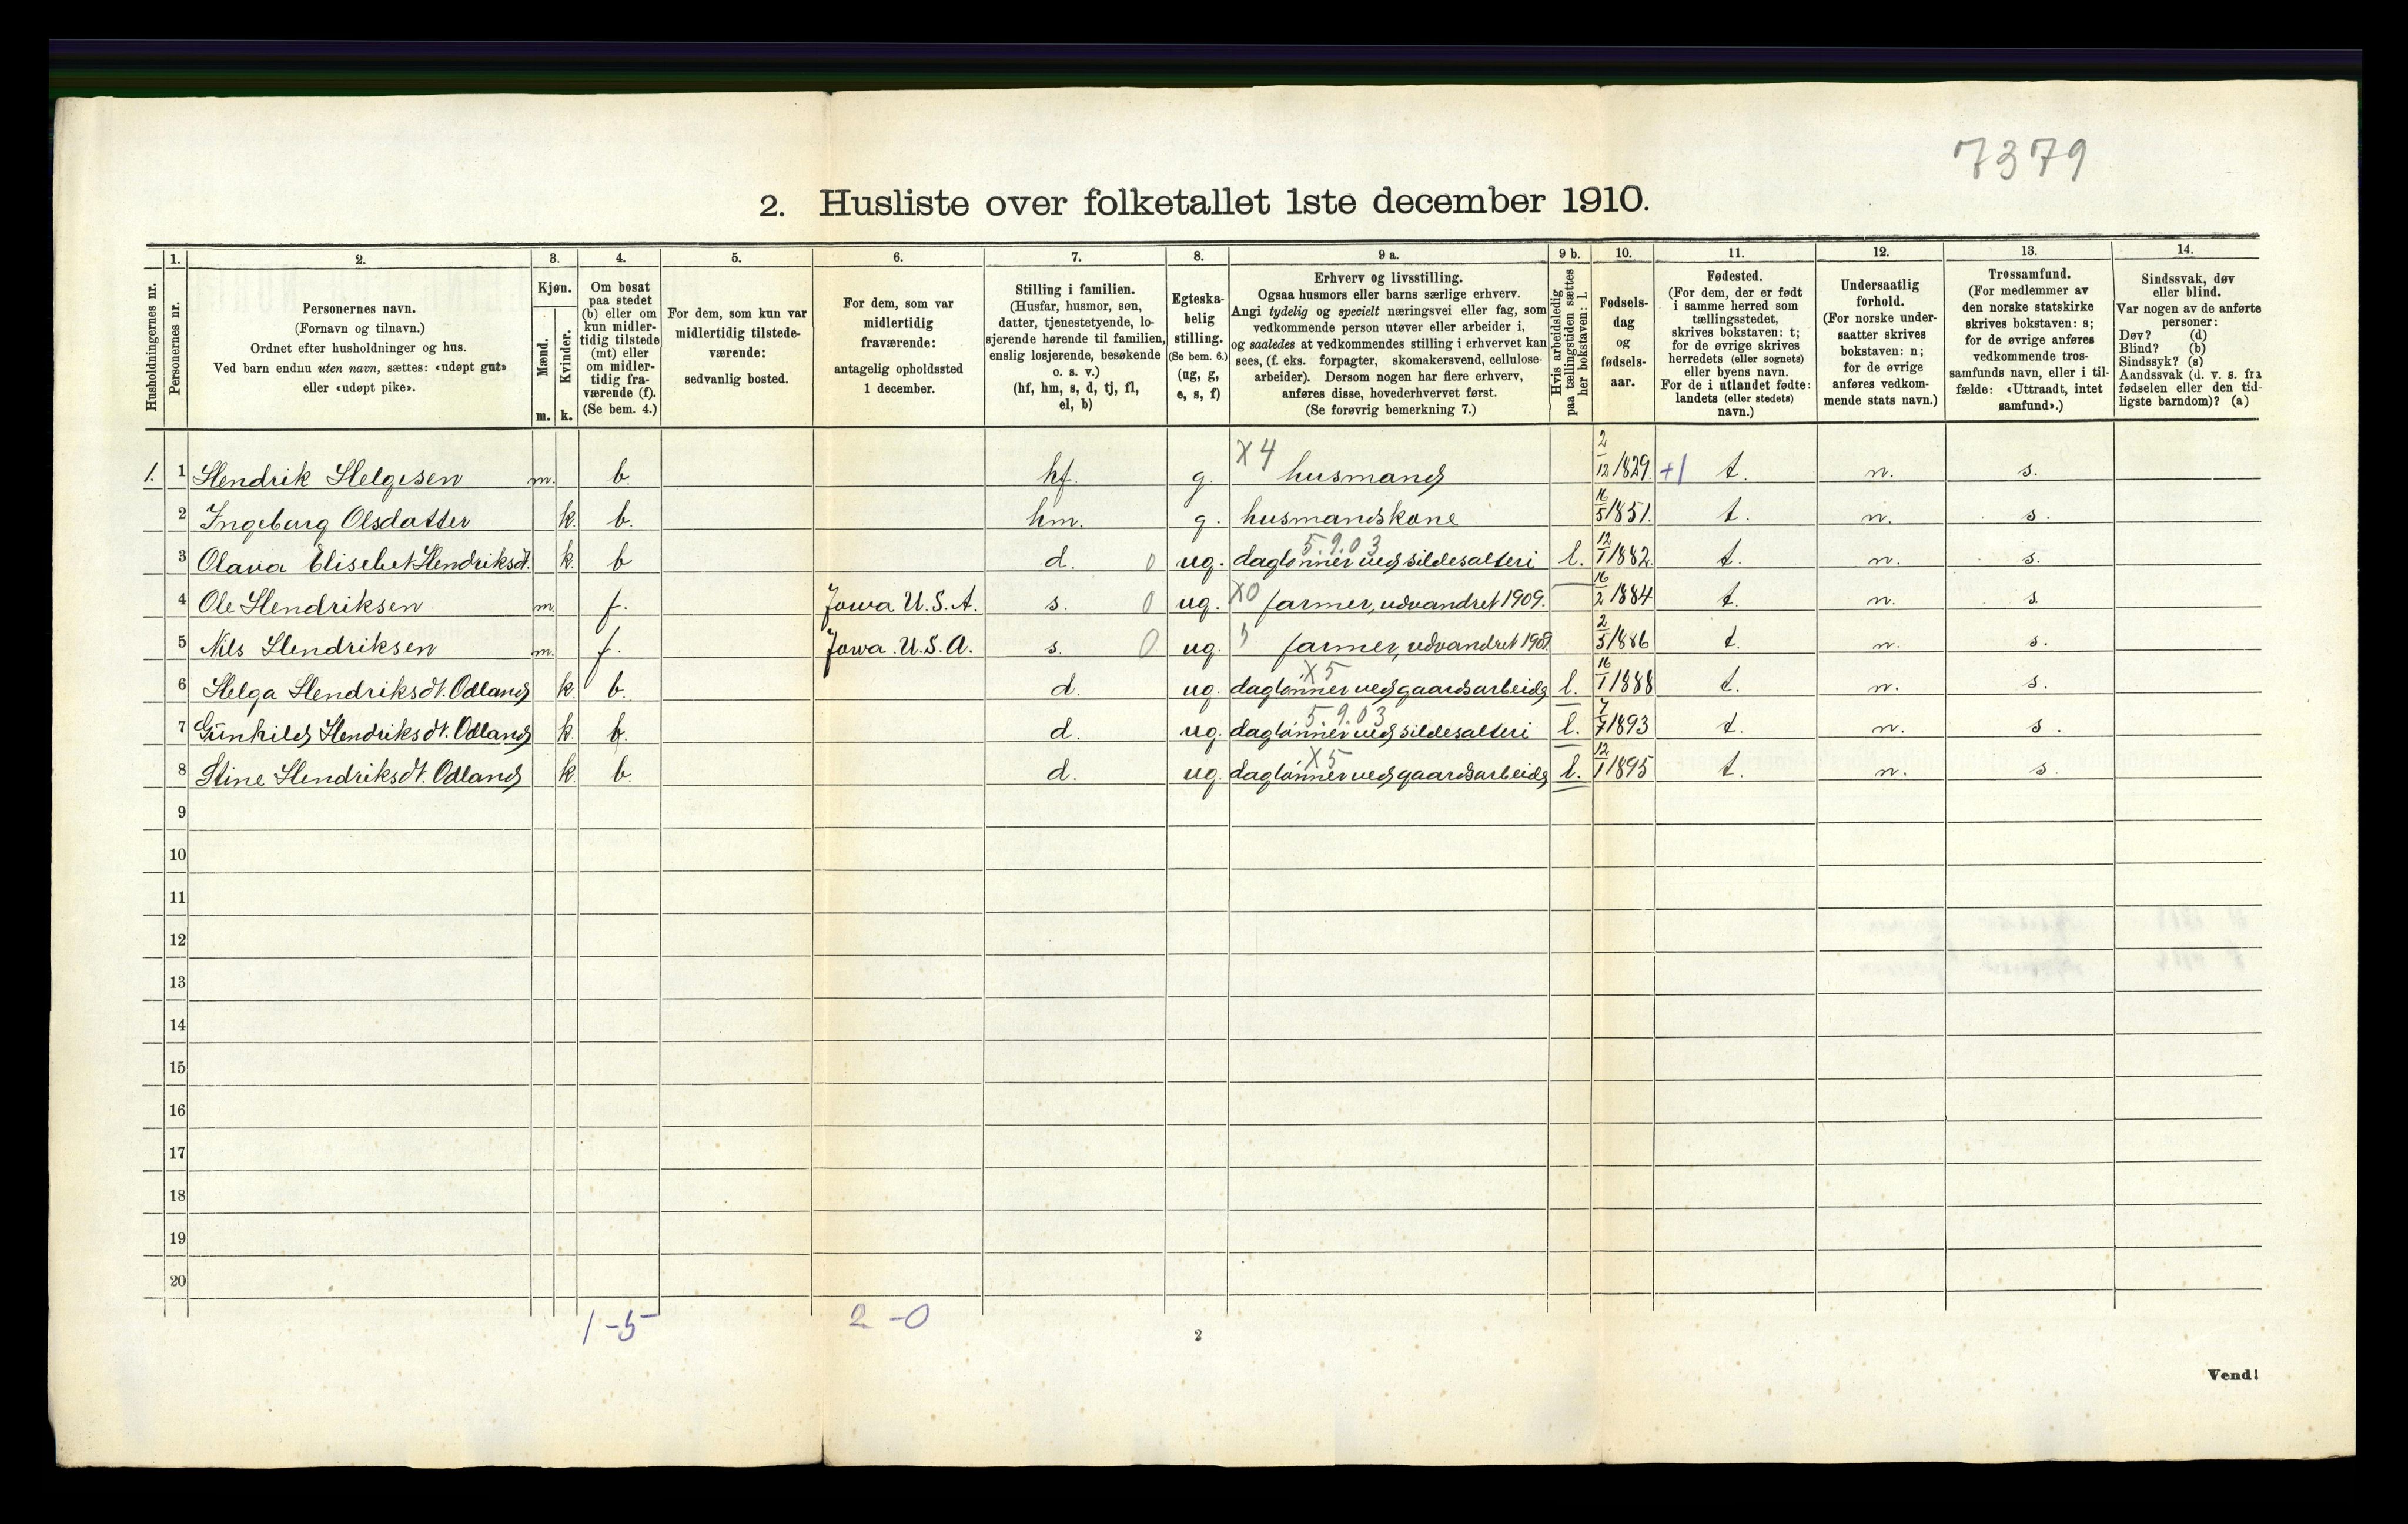 7379
2. Husliste over folketallet 1ste december 1910.
Husholdningernes nr.
1.
Personernes nr.
2.
Personernes navn.
(Fornavn og tilnavn.)
Ordnet efter husholdninger og hus.
Ved barn endnu uten navn, sættes: «udøpt gut»
eller «udøpt pike».
3.
Kjøn.
Mænd.
Kvinder.
m. k.
4.
Om bosat
paa stedet
(b) eller om
kun midler-
tidig tilstede
(mt) eller
om midler-
tidig fra-
værende (f).
(Se bem. 4.)
5.
For dem, som kun var
midlertidig tilstede-
værende:
sedvanlig bosted.
6.
For dem, som var
midlertidig
fraværende:
antagelig opholdssted
1 december.
7.
Stilling i familien.
(Husfar, husmor, søn,
datter, tjenestetyende, lo-
sjerende hørende til familien,
enslig losjerende, besøkende
o. s. v.)
(hf, hm, s, d, tj, fl,
el, b)
8.
Egteska-
belig
stilling.
(Se bem. 6.)
(ug, g,
e, s, f)
9 a.
Erhverv og livsstilling.
Ogsaa husmors eller barns særlige erhverv.
Angi tydelig og specielt næringsvei eller fag, som
vedkommende person utøver eller arbeider i,
og saaledes at vedkommendes stilling i erhvervet kan
sees, (f. eks. forpagter, skomakersvend, cellulose-
arbeider). Dersom nogen har flere erhverv,
anføres disse, hovederhvervet først.
(Se forøvrig bemerkning 7.)
9 b.
Hvis arbeidsledig
paa tællingstiden sættes
her bokstaven: l.
10.
Fødsels-
dag
og
fødsels-
aar.
11.
Fødested.
(For dem, der er født
i samme herred som
tællingsstedet,
skrives bokstaven: t;
for de øvrige skrives
herredets (eller sognets)
eller byens navn.
For de i utlandet fødte:
landets (eller stedets)
navn.)
12.
Undersaatlig
forhold.
(For norske under-
saatter skrives
bokstaven: n;
for de øvrige
anføres vedkom-
mende stats navn.)
13.
Trossamfund.
(For medlemmer av
den norske statskirke
skrives bokstaven: s;
for de øvrige anføres
vedkommende tros-
samfunds navn, eller i til-
fælde: «Uttraadt, intet
samfund».)
14.
Sindssvak, døv
eller blind.
Var nogen av de anførte
personer:
Døv? (d)
Blind? (b)
Sindssyk? (s)
Aandssvak (d. v. s. fra
fødselen eller den tid-
ligste barndom)? (a)
1. 1 Hendrik Helgesen m. b. hf. g. X4 husmand 2/12 1829. +1 t. n. s.
2 Ingeborg Olsdatter k. b. hm. g. husmandskone 16/5 1851. t. n. s.
3 Olava Elisebet Hendriksdt. k. b d. 0 ug. 5.9.03 daglønner ved sildesalteri l. 12/1 1882. t. n. s.
4 Ole Hendriksen m. f. Jowa U.S.A. s. 0 ug. X0 farmer, udvandret 1909. 16/2 1884 t. n. s.
5 Nils Hendriksen m. f. Jowa. U.S.A. s. 0 ug. farmer, udvandret 1909. 2/5 1886 t. n. s.
6 Helga Hendriksdt. Odland k. b. d. ug. X5 daglønner ved gaardsarbeide l. 16/1 1888 t. n. s.
7 Gunhild Hendriksdt. Odland k. b. d. ug. 5.9.03 daglønner ved sildesalteri l. 7/7 1893 t. n. s.
8 Stine Hendriksdt. Odland k. b. d. ug. X5 daglønner ved gaardsarbeide l. 12/1 1895 t. n. s.
9
10
11
12
13
14
15
16
17
18
19
20
1-5 2-0
2
Vend!